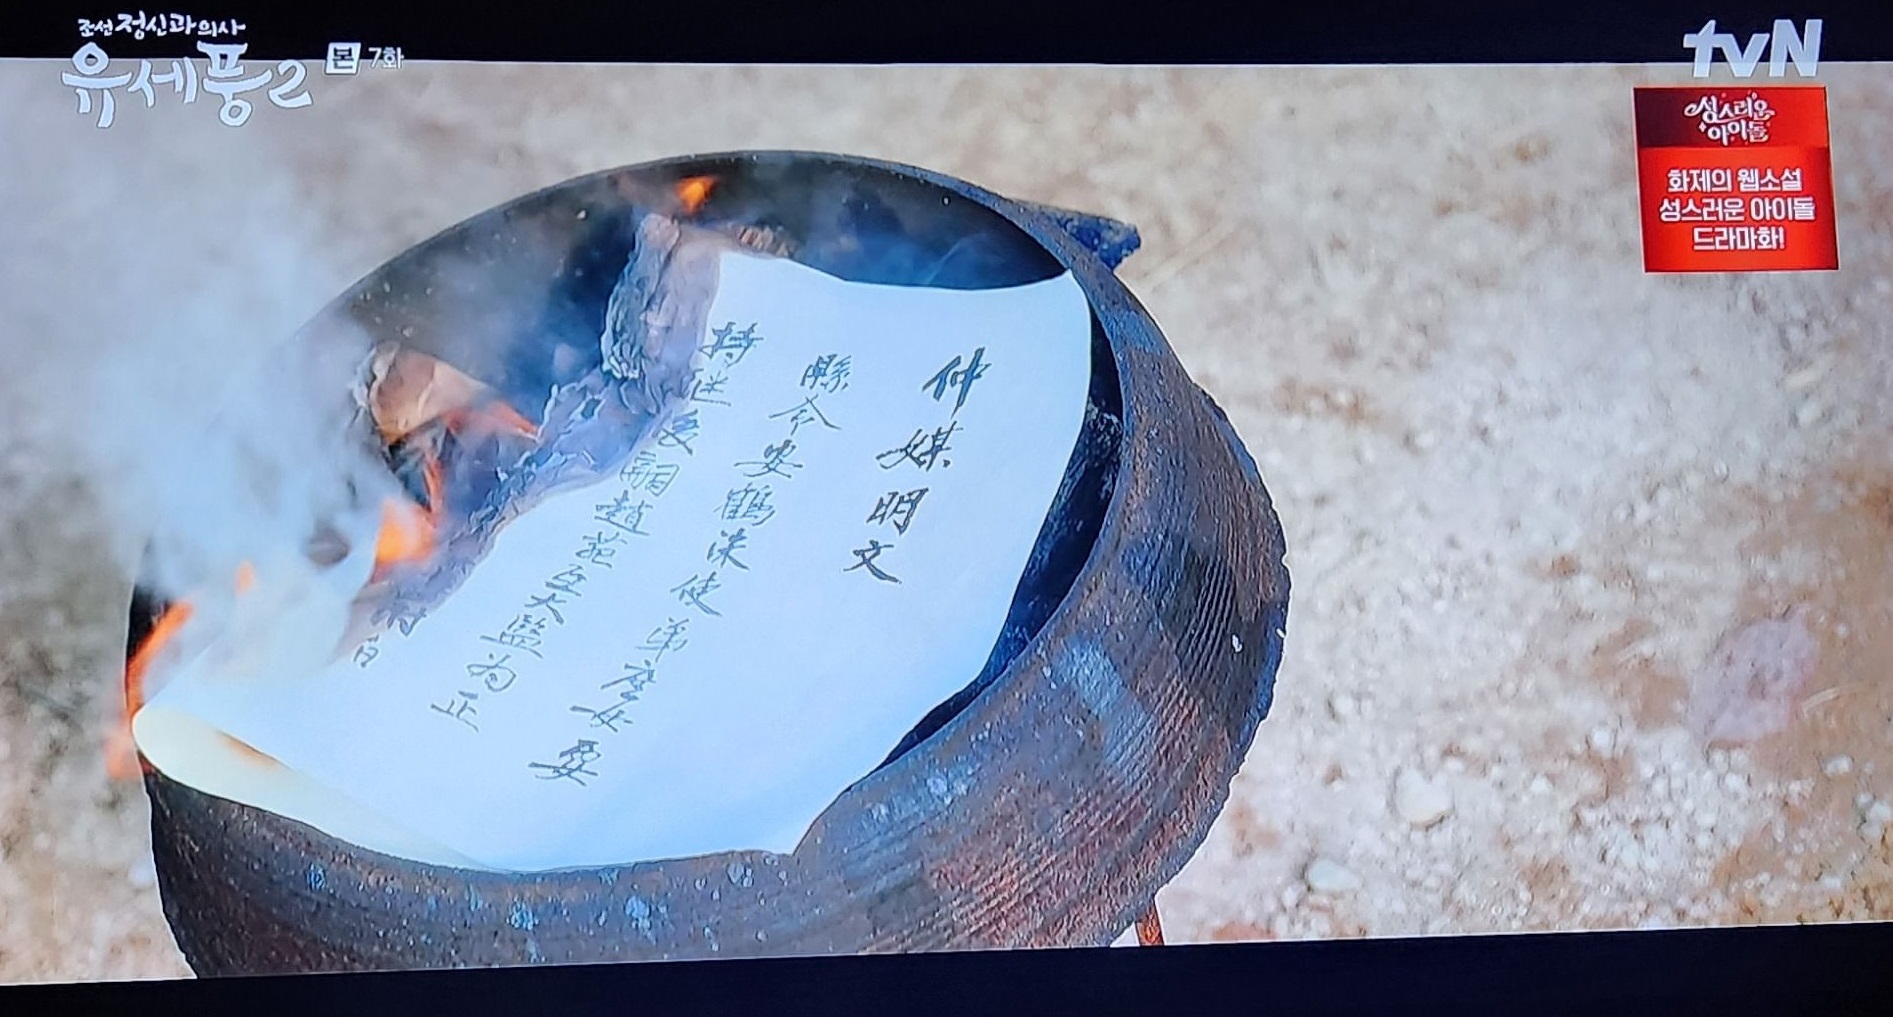 조선정신과의사
유세풍2
본 7화
tvN
성스러운
아이돌
화제의 웹소설
성스러운 아이돌
드라마화!
仲媒明文
縣令安鶴洙使弟 女
持 趙 大監為正